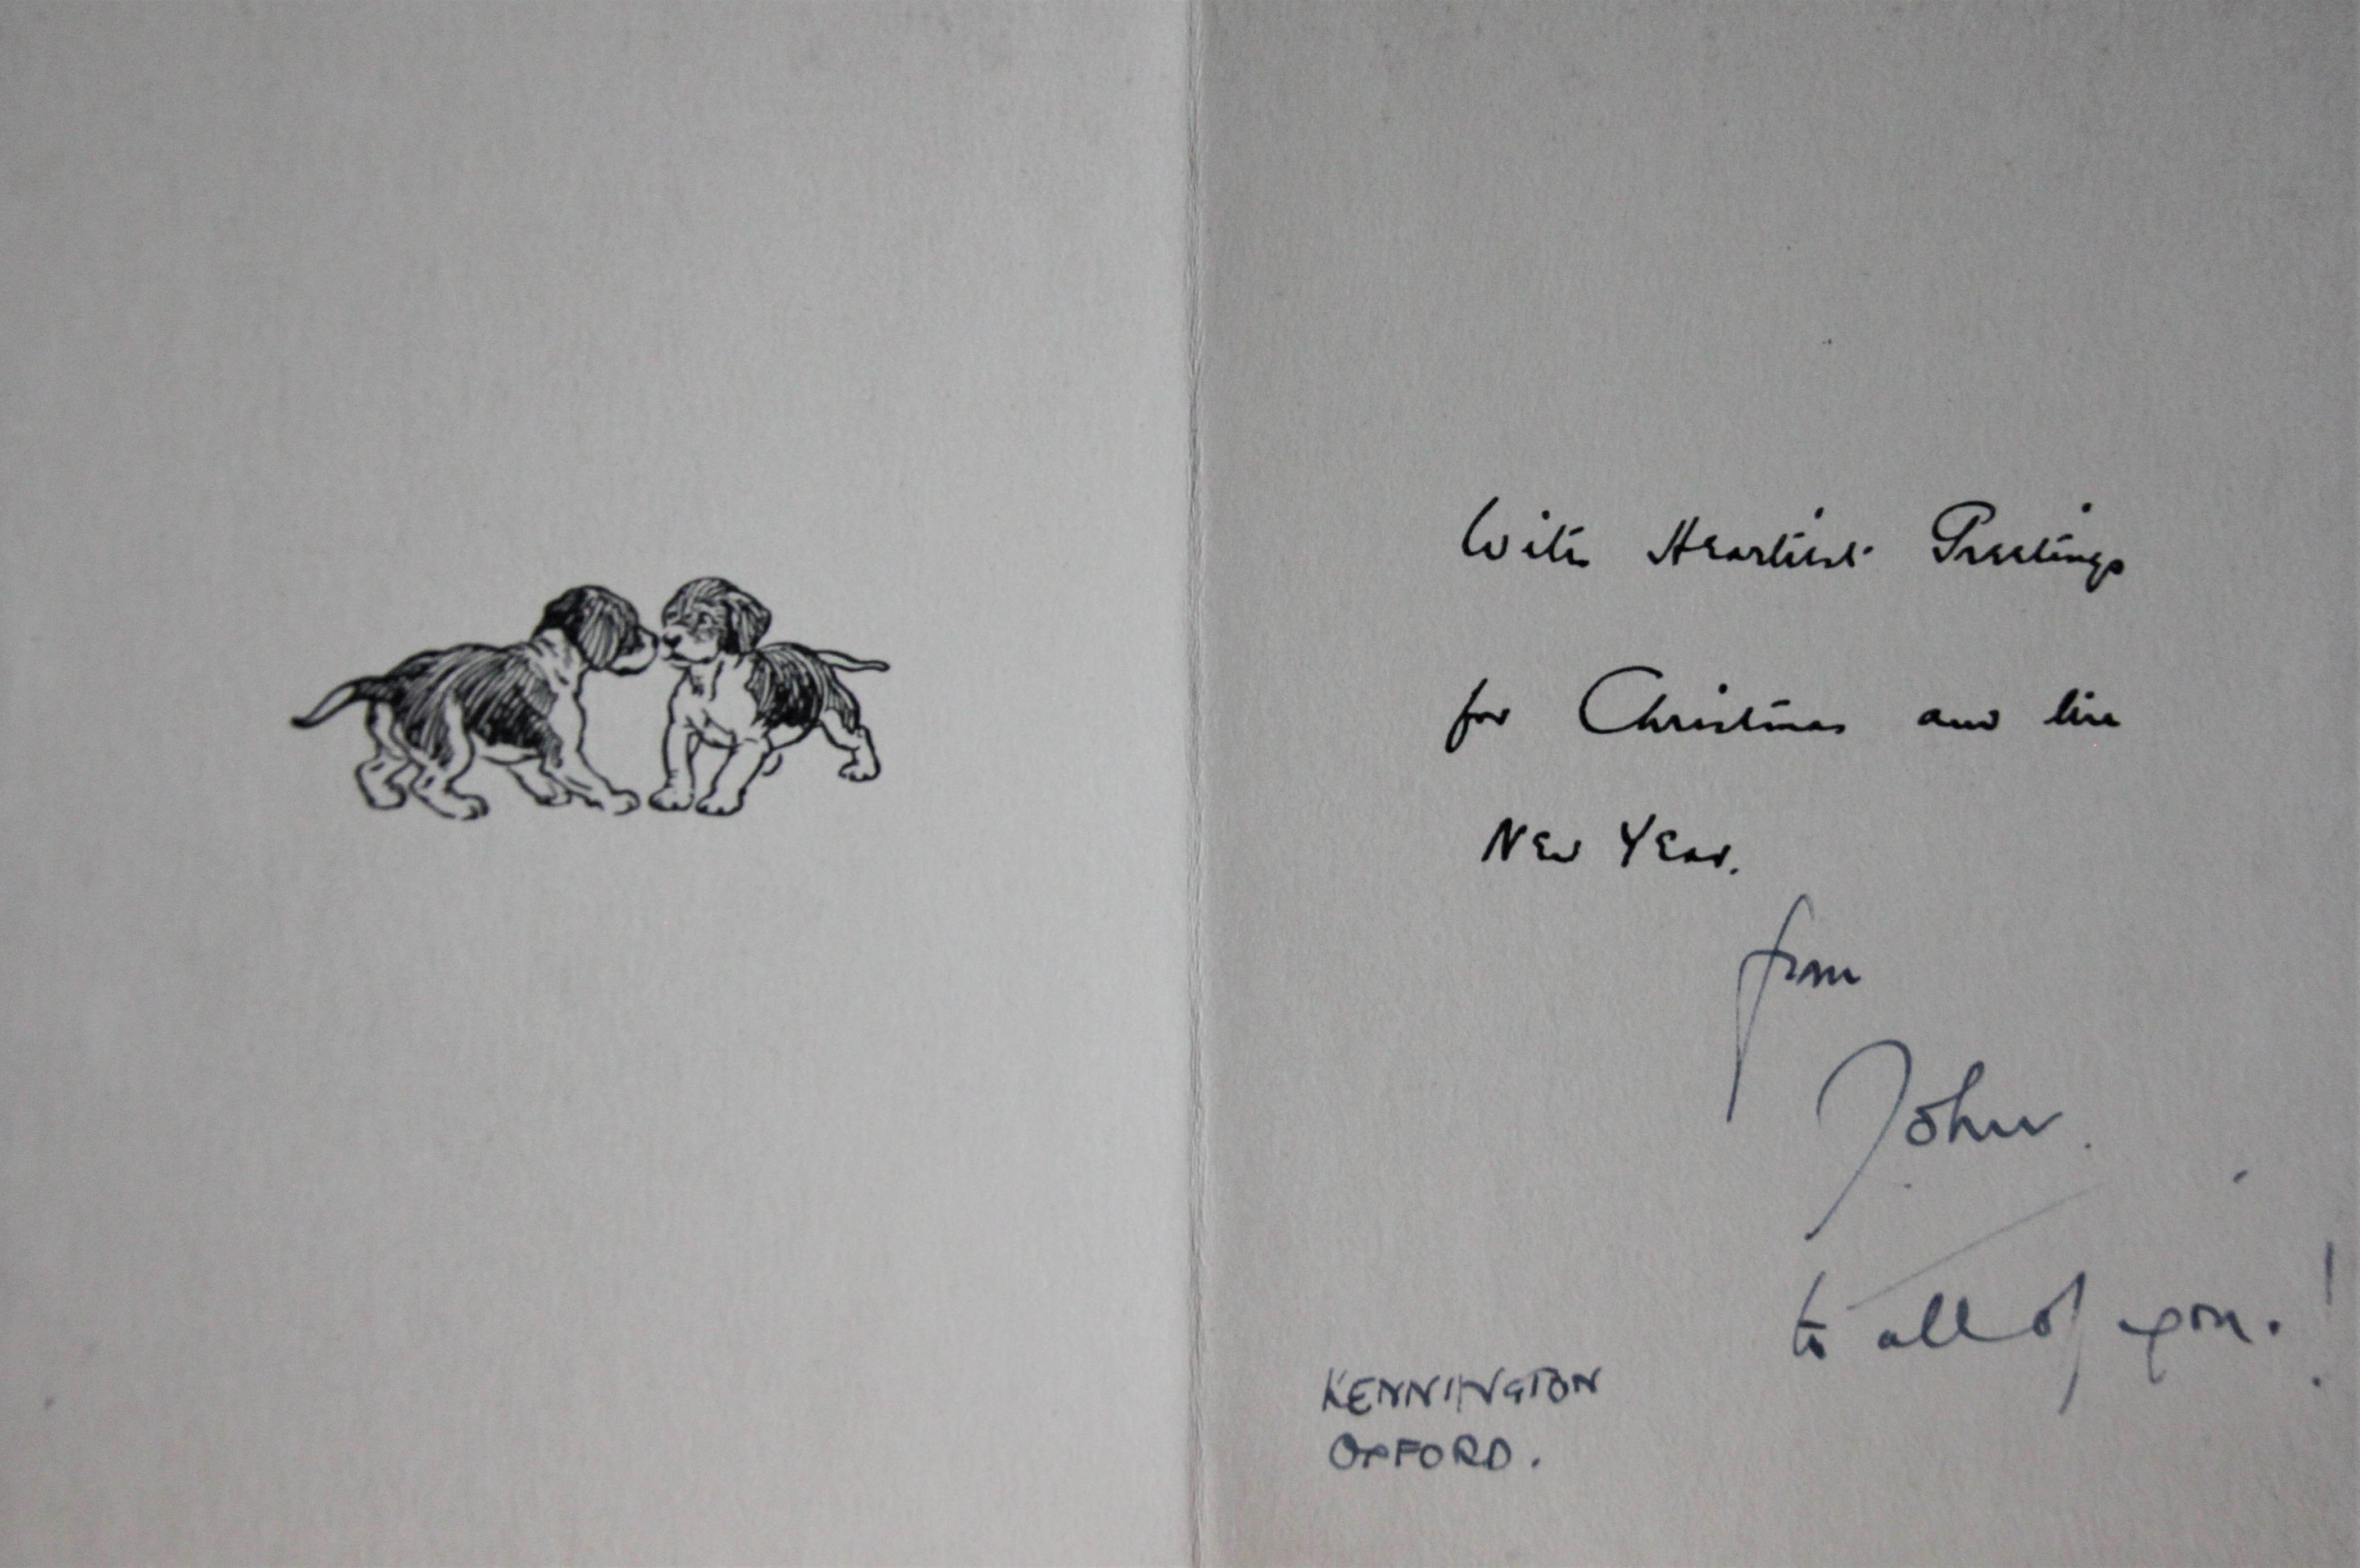 With Heartiest Greetings
for Christmas and the
New Year.
from
John.
to all of you.!
KENNINGTON
OXFORD.